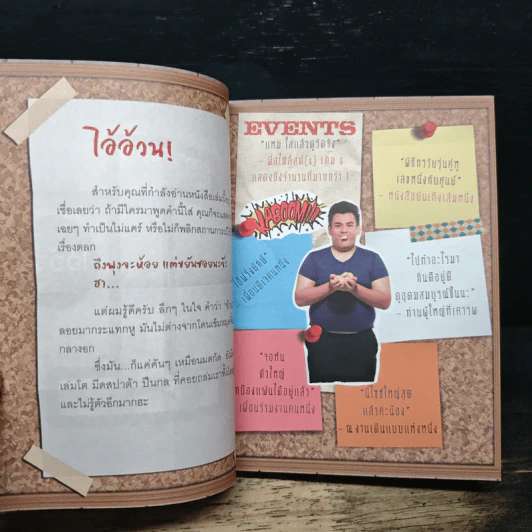 ไอ้อ้วน!
สำหรับคุณที่กำลังอ่านหนังสือเล่มนี้
เชื่อเลยว่า ถ้ามีใครมาพูดคำนี้ใส่ คุณก็จะ
เฉยๆ ทำเป็นไม่แคร์ หรือไม่ก็พลิกสถานการณ์
เรื่องตลก
ถึงพุงจะห้อย แต่ขยันซอยนะจ๊ะ
ฮา...
แต่ผมรู้ดีครับ ลึกๆ ในใจ คำว่า
ลอยมากระแทกหู มันไม่ต่างจากโดนเข็ม
กลางอก
ซึ่งมัน...ก็แค่คันๆ เหมือนมดกัด
เล่มโต มีดสปาต้า ปืนกล ที่คอยถล่มเรา
และไม่รู้ตัวอีกมากฮะ
EVENTS
"แหม ใส่แล้วดูวัดจัง"
แสดงถึงจำนวนที่มากกว่า 1
KABOOM!!
- เพื่อนสาวคนหนึ่ง
"พิธีกรวัยรุ่นคู่หู
- หนังสือบันเทิงเล่มหนึ่ง
"ไปทำอะไรมา
กินดีอยู่ดี
ดูอุดมสมบูรณ์ขึ้นนะ"
- ท่านผู้ใหญ่ที่เคารพ
"จอห์น
ตัวใหญ่
มีแฟนได้อยู่แล้ว"
เพื่อนร่วมงานคนหนึ่ง
"นี่ไซซ์ใหญ่สุด
แล้วค่ะน้อง"
- ณ งานเดินแบบแห่งหนึ่ง